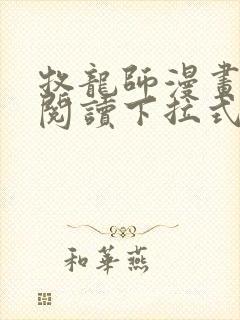 牧龍師漫畫
閱讀下拉式
和華燕